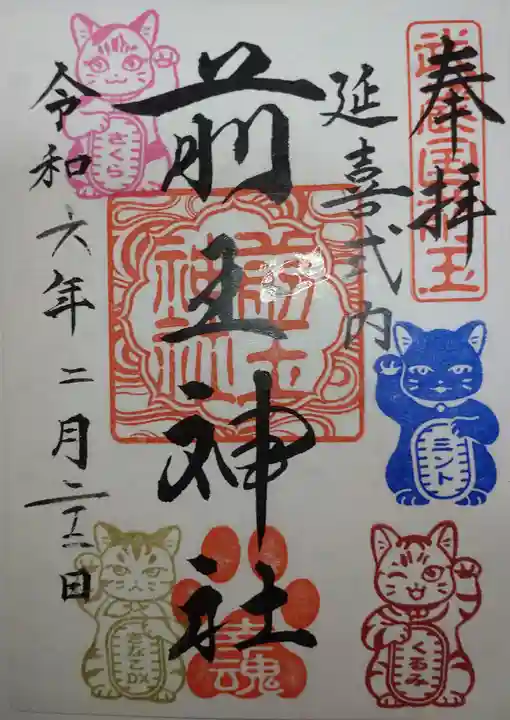 奉拝
延喜式内
前玉神社
令和六年二月二十二日
前玉神社
さくら
ミント
きなこDX
くるみ
幸魂